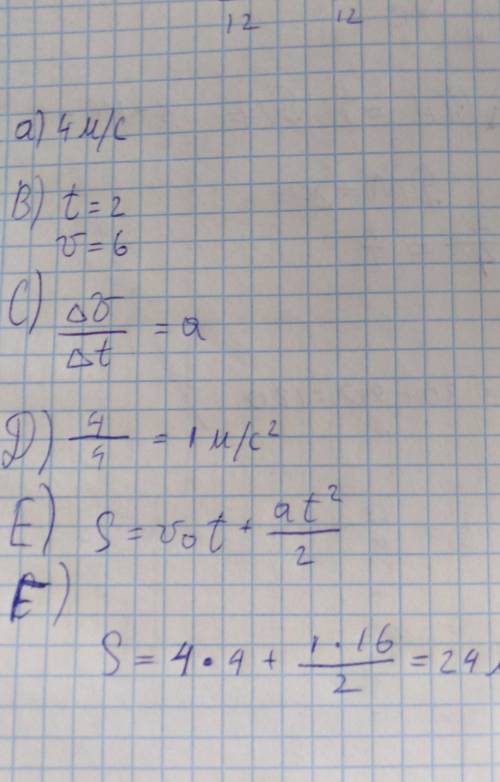 12 12
a) 4 м/с
B) t = 2
v = 6
C) Δv/Δt = a
D) 4/4 = 1 м/с²
E) S = v₀t + at²/2
F)
S = 4·4 + 1·16/2 = 24